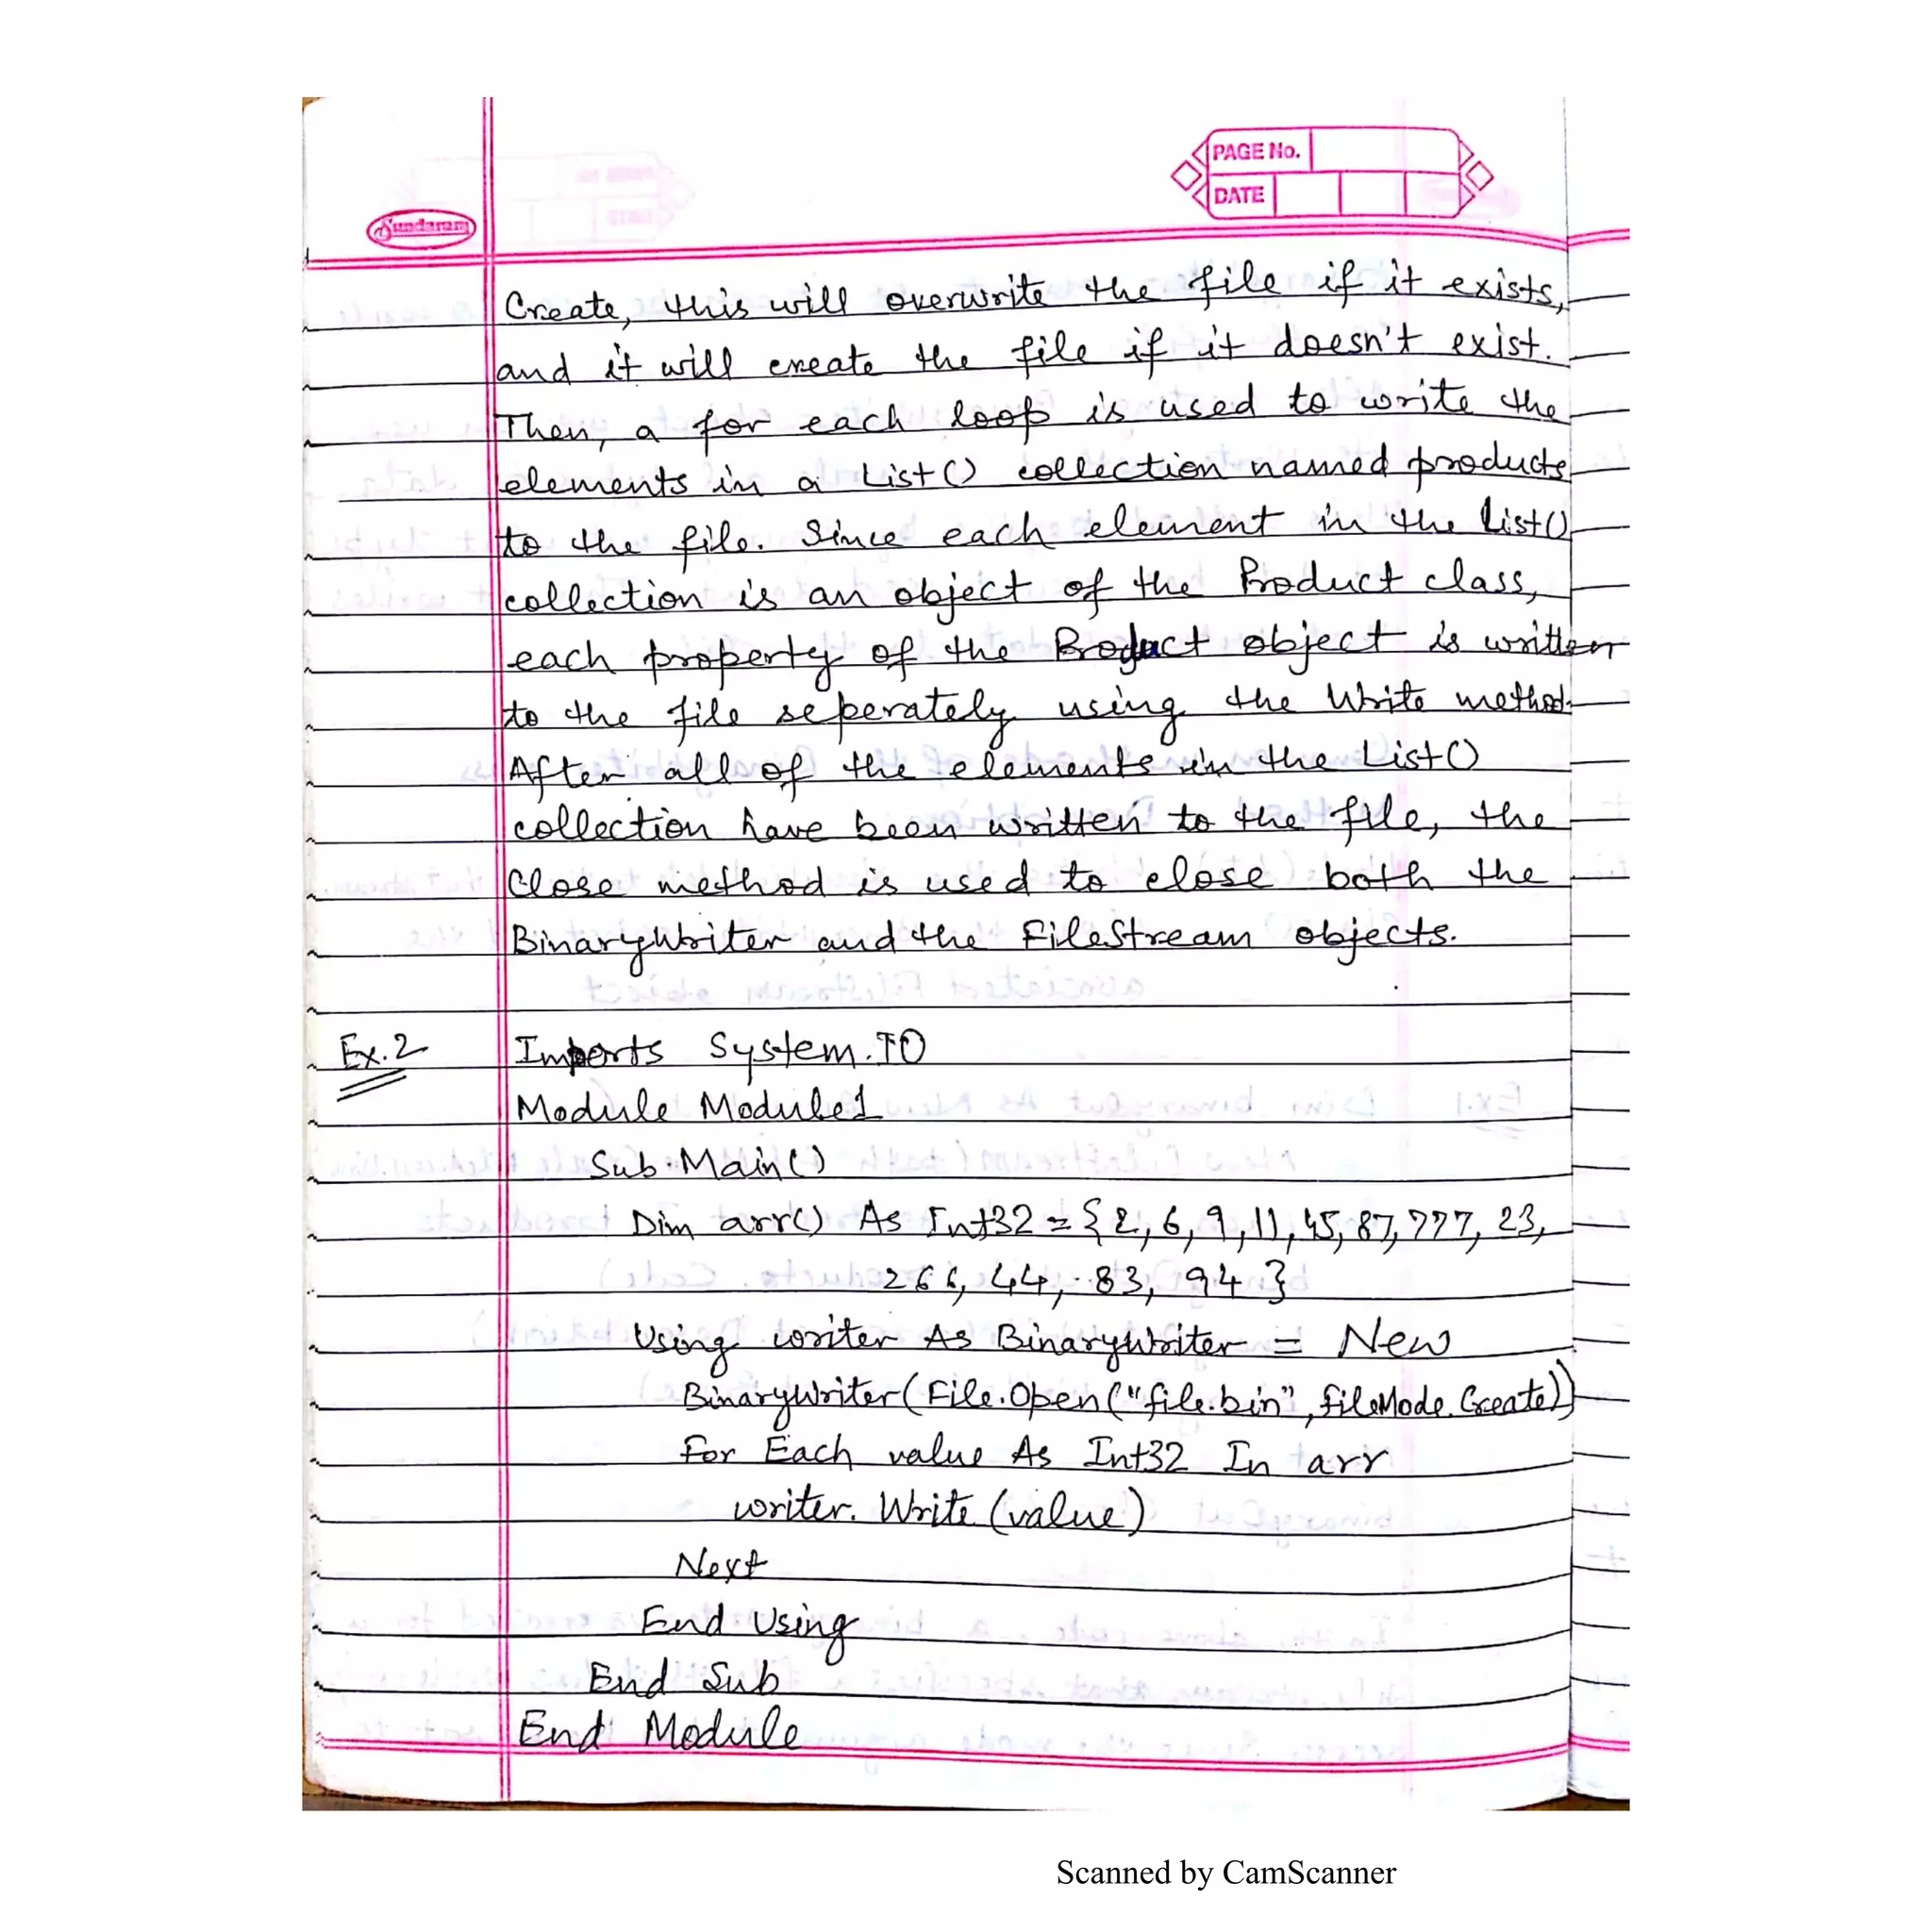 PAGE No.
DATE
Sundaram
Create, this will overwrite the file if it exists,
and it will create the file if it doesn't exist.
Then, a for each loop is used to write the
elements in a List() collection named products
to the file. Since each element in the List()
collection is an object of the Product class,
each property of the Product object is written
to the file seperately using the Write method.
After all of the elements in the List()
collection have been written to the file, the
Close method is used to close both the
BinaryWriter and the FileStream objects.
Ex.2 Imports System.IO
Module Module1
Sub Main()
Dim arr() As Int32 = {2, 6, 9, 11, 45, 87, 777, 23,
266, 44, 83, 94 }
Using writer As BinaryWriter = New
BinaryWriter(File.Open("file.bin", FileMode.Create))
For Each value As Int32 In arr
writer.Write(value)
Next
End Using
End Sub
End Module
Scanned by CamScanner